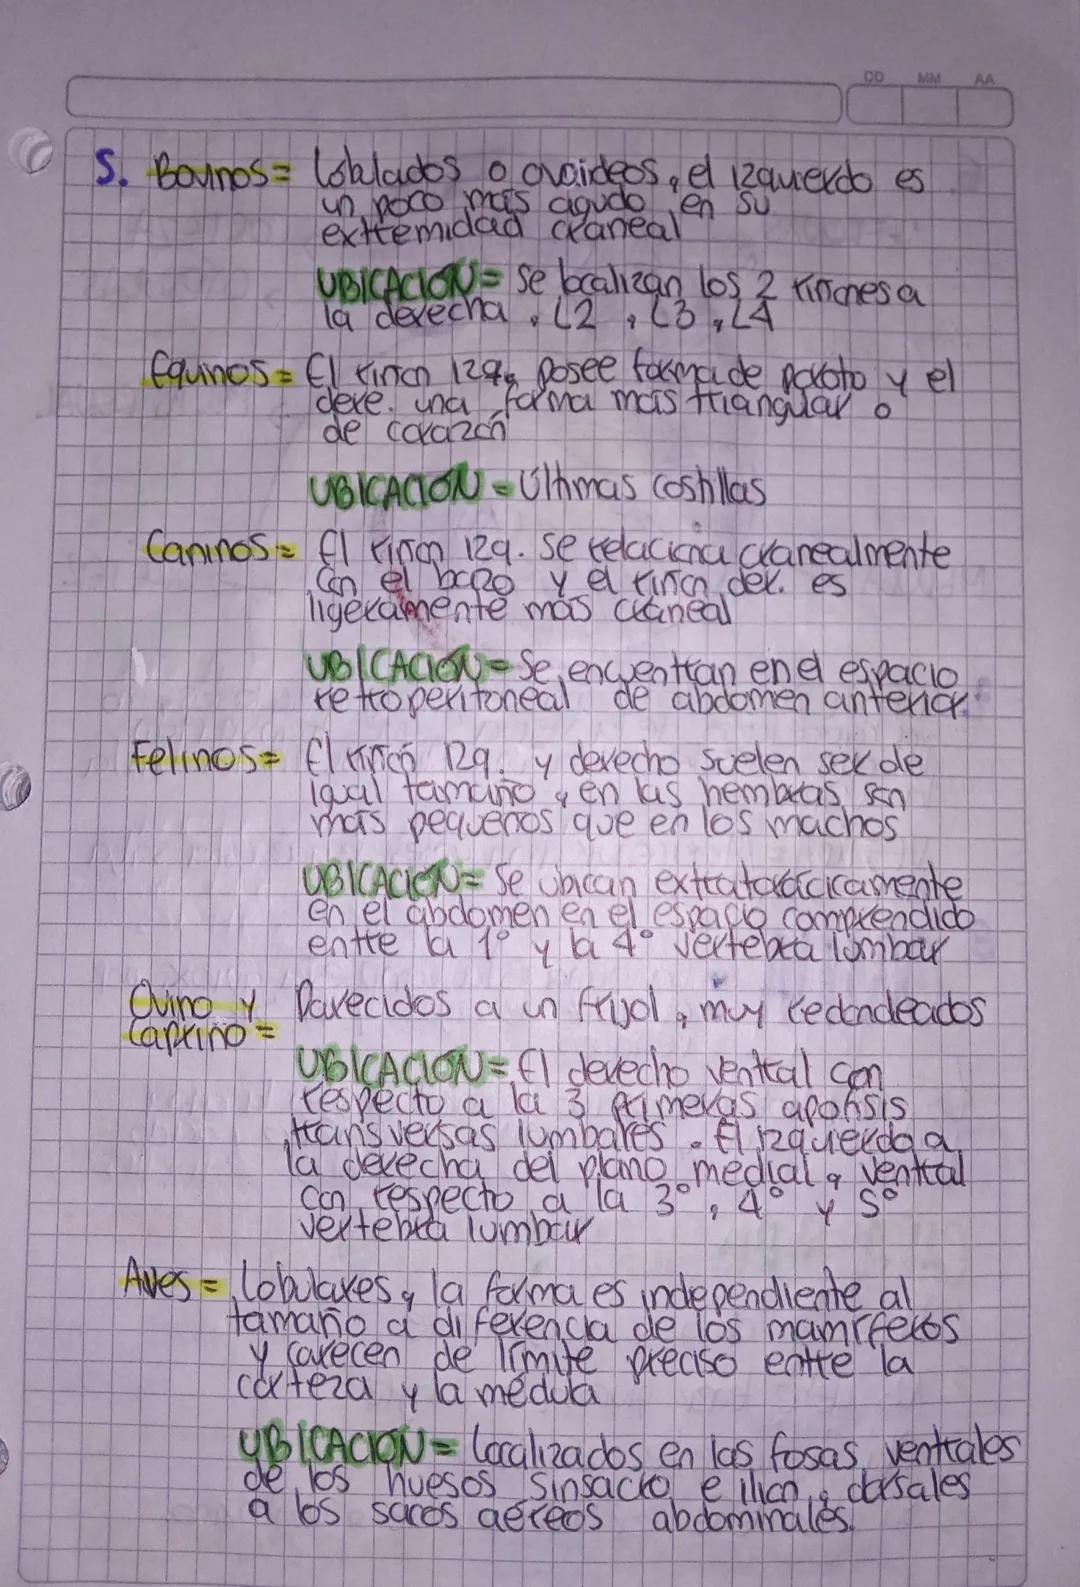 DD MM AA
5. Bovinos= lobulados o ovoideos, el izquierdo es
un poco más agudo en su
extremidad craneal
UBICACIÓN= se localizan los 2 riñones a
la derecha, L2, L3, L4
Equinos= El riñón izq. posee forma de poroto y el
dere. una forma más triangular o
de corazón
UBICACIÓN= Últimas costillas
Caninos= El riñón izq. se relaciona cranealmente
con el bazo y el riñón der. es
ligeramente más craneal
UBICACIÓN= Se encuentran en el espacio
retroperitoneal de abdomen anterior
Felinos= El riñón izq. y derecho suelen ser de
igual tamaño, en las hembras son
más pequeños que en los machos
UBICACIÓN= Se ubican extratorácicamente
en el abdomen en el espacio comprendido
entre la 1° y la 4° vertebra lumbar
Ovino y Parecidos a un frijol, muy redondeados
caprino=
UBICACIÓN= El derecho ventral con
respecto a la 3 primeras apofisis
transversas lumbares. El izquierdo a
la derecha del plano medial, ventral
con respecto a la 3°, 4° y 5°
vertebra lumbar
Aves= Lobulares, la forma es independiente al
tamaño a diferencia de los mamíferos
y carecen de límite preciso entre la
corteza y la médula
UBICACIÓN= Localizados en las fosas ventrales
de los huesos sinsacro e ilion, dorsales
a los sacos aéreos abdominales.